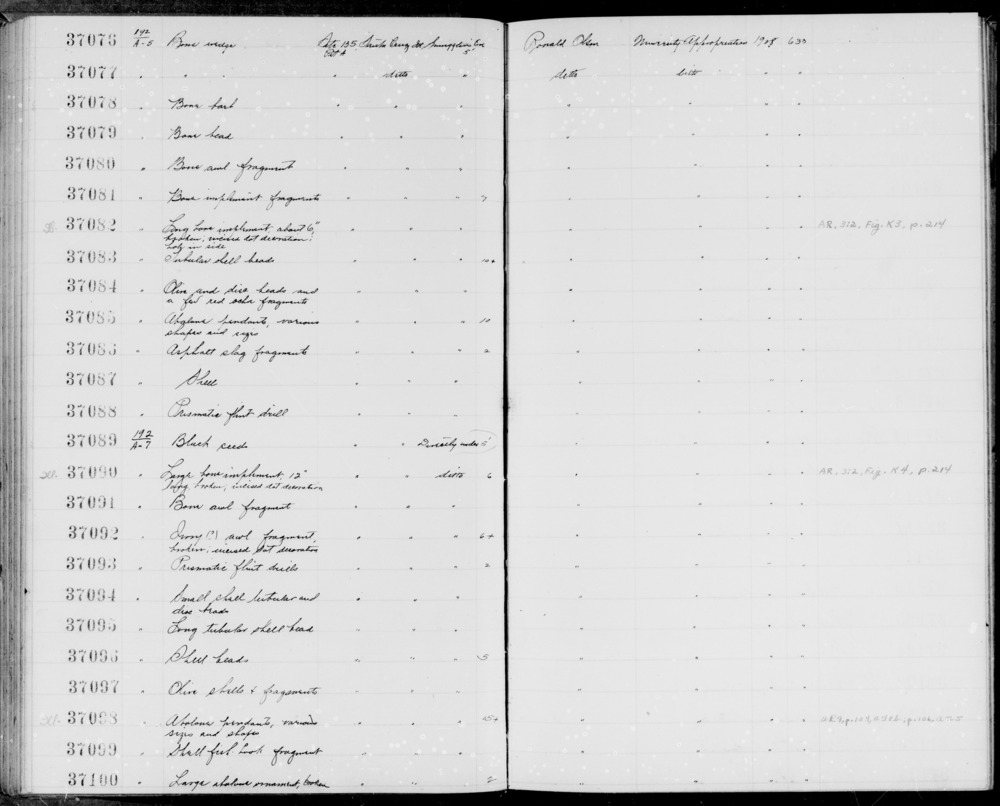 37076 192/A-5 Bone wedge Site 135, Santa Cruz Isl. Smugglers Cove Ronald Olson University Appropriation 1928 633
37077 " " " ditto " ditto ditto " "
37078 " Bone barb " " " " " " "
37079 " Bone bead " " " " " " "
37080 " Bone awl fragment " " " " " " "
37081 " Bone implement fragments " " " 7 " " " "
37082 " Long bone implement, about 6", AR, 312, Fig. K3, p. 214
broken; incised dot decoration;
hole in side
37083 " Tubular shell beads " " " 10+ " " " "
37084 " Olive and disc beads and " " " " " " "
a few red ochre fragments
37085 " Abalone pendants, various " " " 10 " " " "
shapes and sizes
37086 " Asphalt slag fragments " " " 2 " " " "
37087 " Shell " " " " " " "
37088 " Prismatic flint drill " " " " " " "
37089 192/A-7 Black seeds " " Directly under 5 " " " "
37090 " Large bone implement, 12" " " ditto 6 " " " " AR, 312, Fig. K4, p. 214
long, broken, incised dot decoration
37091 " Bone awl fragment " " " " " " "
37092 " Ivory (?) awl fragment, " " " 6+ " " " "
broken, incised dot decoration
37093 " Prismatic flint drills " " " 2 " " " "
37094 " Small shell tubular and " " " " " " "
disc beads
37095 " Long tubular shell bead " " " " " " "
37096 " Shell beads " " " 5 " " " "
37097 " Olive shells & fragments " " " " " " "
37098 " Abalone pendants, various " " " 15+ " " " "
sizes and shapes
37099 " Shell fish hook fragment " " " " " " "
37100 " Large abalone ornament, broken " " " 2 " " " "